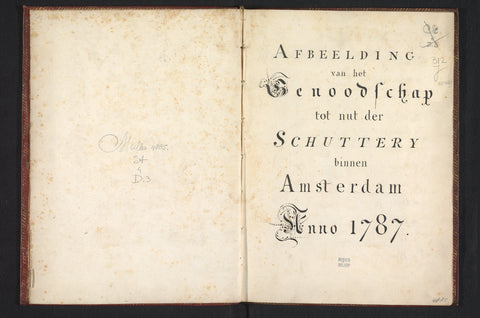 34
D.3
AFBEELDING
van het
Genoodschap
tot nut der
SCHUTTERY
binnen
Amsterdam
Anno 1787.